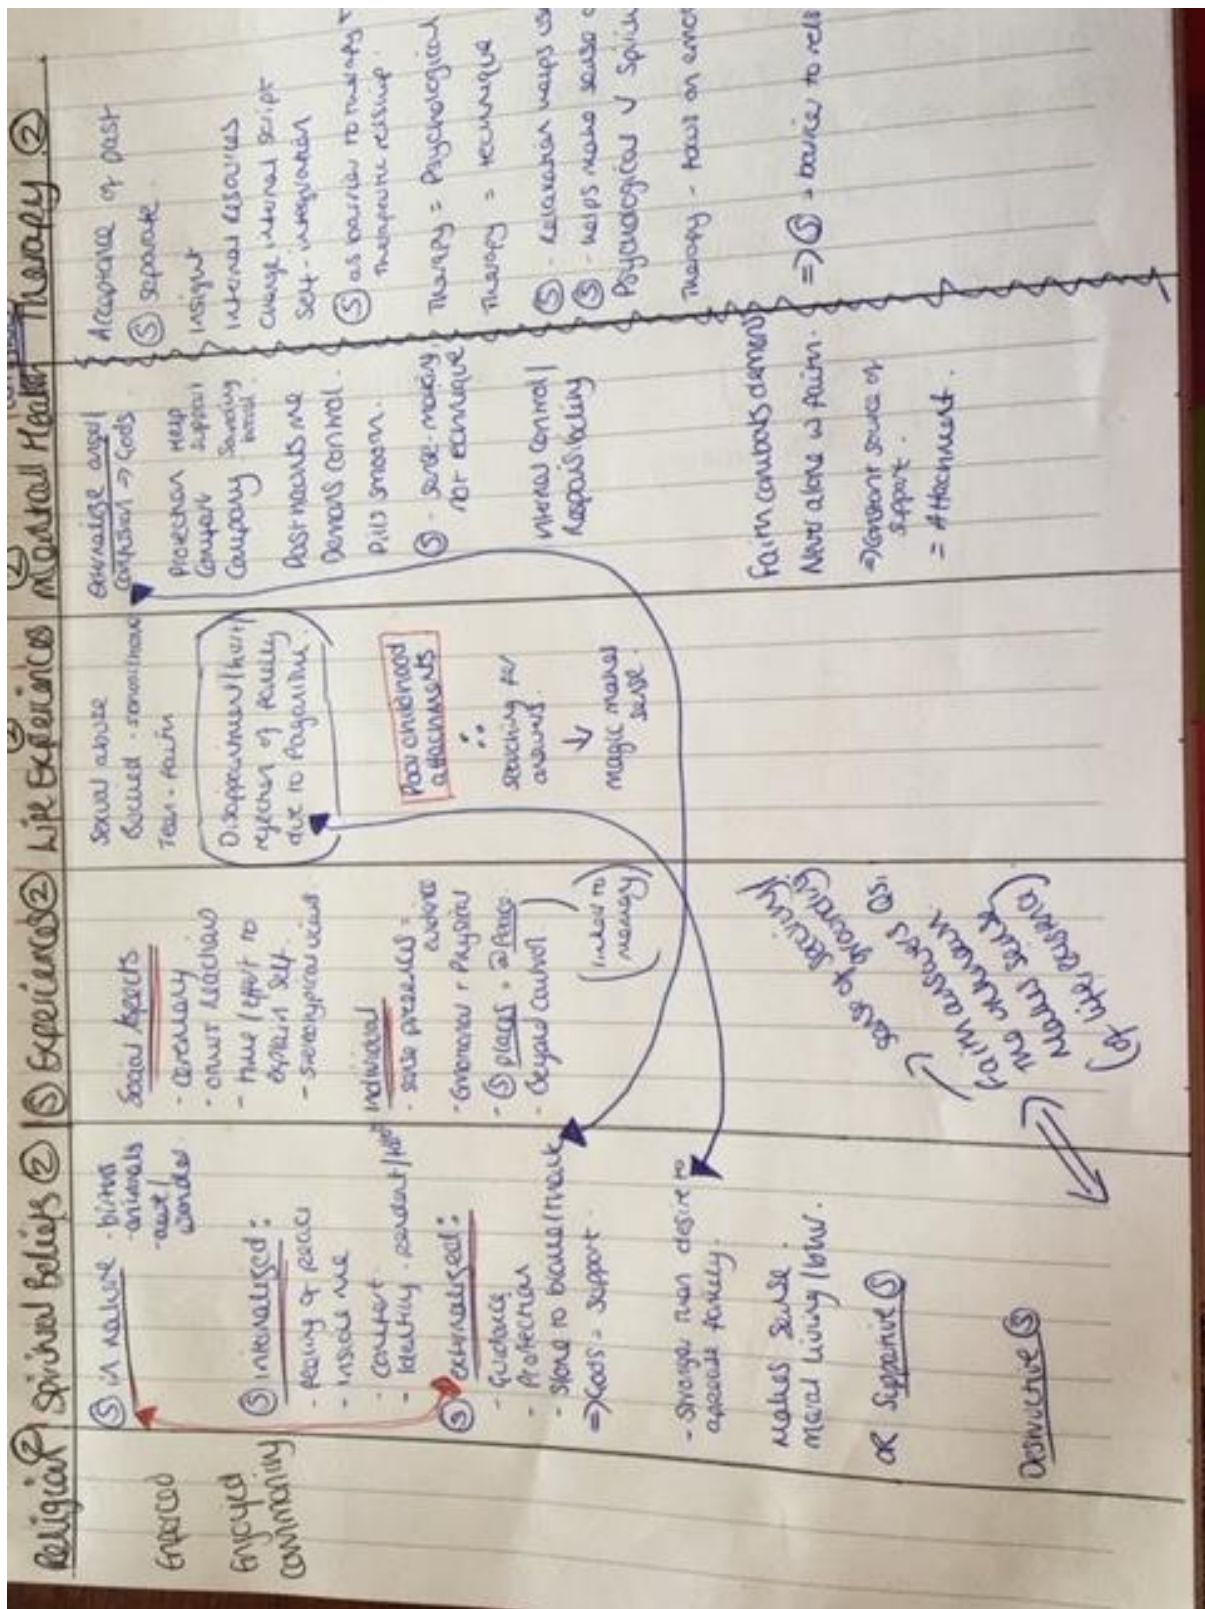 Religion ②
Enforced
Enjoyed
community
Spiritual Beliefs ②
Ⓢ in nature - births
- animals
- awe/
wonder
Ⓢ internalised:
- feeling of peace
- inside me
- comfort
- Identity - pendant/
Ⓢ externalised:
- Guidance
- Protection
- Stone to blame/thank
⇒ Gods = support.
- Stronger than desire to
appease family.
Makes sense
Moral living / law.
OR Supportive Ⓢ
Destructive Ⓢ
Ⓢ Experiences ②
Social Aspects
- ceremony
- other reactions
- time / effort to
explain self.
- stereotypical views
Individual
- sense presences =
- Emotional + Physical
- Ⓢ places = peace
- Beyond control
(linked to
therapy)
sense of security/
grounding
Faith answers Qs.
the unknown.
Makes sense
(of life events)
Life Experiences ②
Sexual abuse
Rescued -
Tear - faith
Disappointment/hurt/
rejection of family
due to Paganism.
Poor childhood
attachments
∴
searching for
answers.
↓
magic makes
sense.
Mental Health ②
Externalise anger/
confusion ⇒ Gods
Protection Help
Comfort support
Company Sounding
board.
Past haunts me
Demons control.
Pills smooth.
Ⓢ - sense-making,
not technique
Internal control/
Responsibility
Faith combats demons
Never alone w faith.
⇒ Constant source of
support.
= Attachment.
Therapy ②
Acceptance of past
Ⓢ separate.
Insight
Internal resources
Change internal script
Self-integration
Ⓢ as barrier to therapy +
therapeutic relship
Therapy = Psychological
Therapy = technique
Ⓢ - Relaxation helps
Ⓢ - helps make sense
Psychological V
Therapy - focus on
⇒ Ⓢ = barrier to